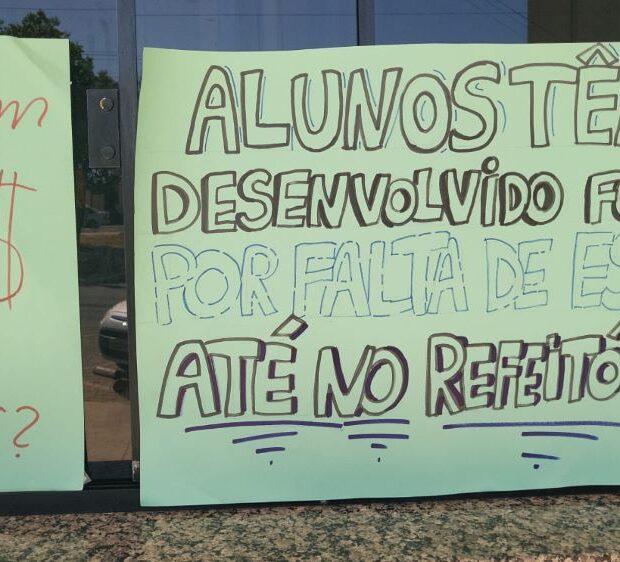 $
?
ALUNOS TÊ
DESENVOLVIDO
POR FALTA DE ES
ATÉ NO REFEITÓ